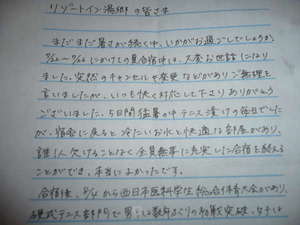 リゾートイン湯郷の皆さま
まだまだ暑さが続く中、いかがお過ごしでしょうか。
にかけての夏合宿中は、大変お世話になり
ました。突然のキャンセルや変更などがありご無理を
言いましたが、いつも快く対応して下さりありがとうご
ございました。5日間猛暑の中テニス漬けの毎日でした
が、宿舎に戻ると冷たいお水と快適な部屋があり、
誰1人欠けることなく全員無事に充実した合宿を終える
ことができ、本当によかったです。
合宿後、から西日本医科学生総合体育大会があり、
硬式テニス部門で男子は数年ぶりの初戦突破、女子は